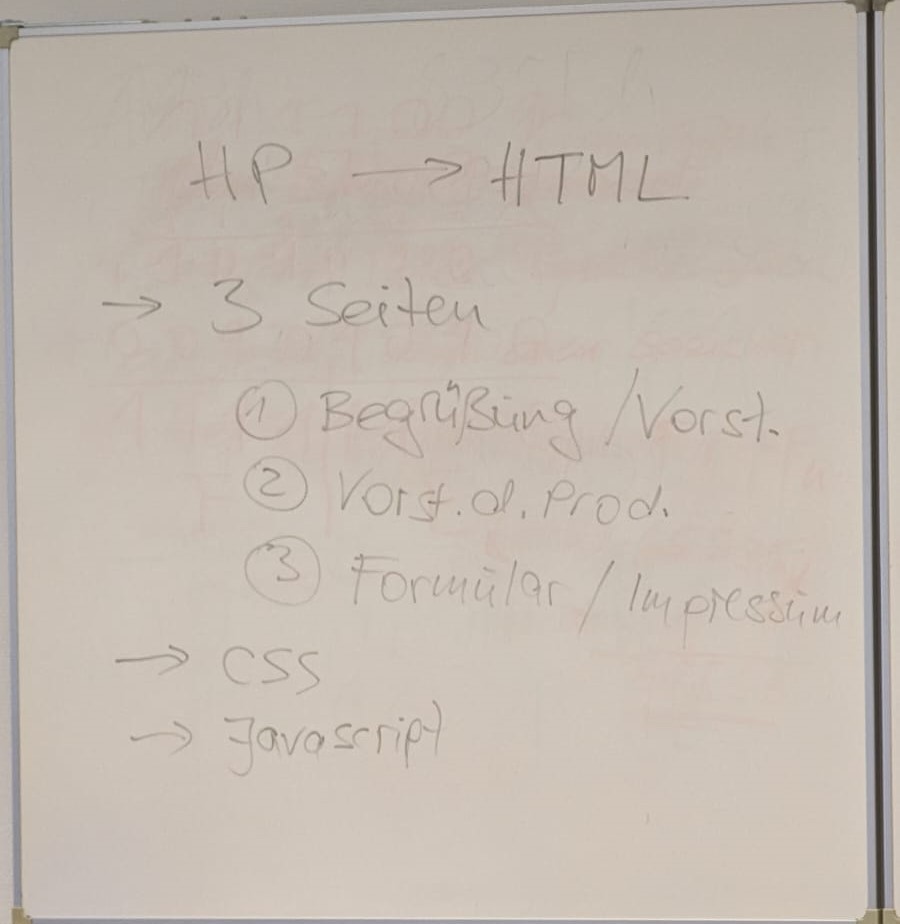 HP → HTML
→ 3 Seiten
① Begrüßung / Vorst.
② Vorst. d. Prod.
③ Formular / Impressum
→ CSS
→ Javascript